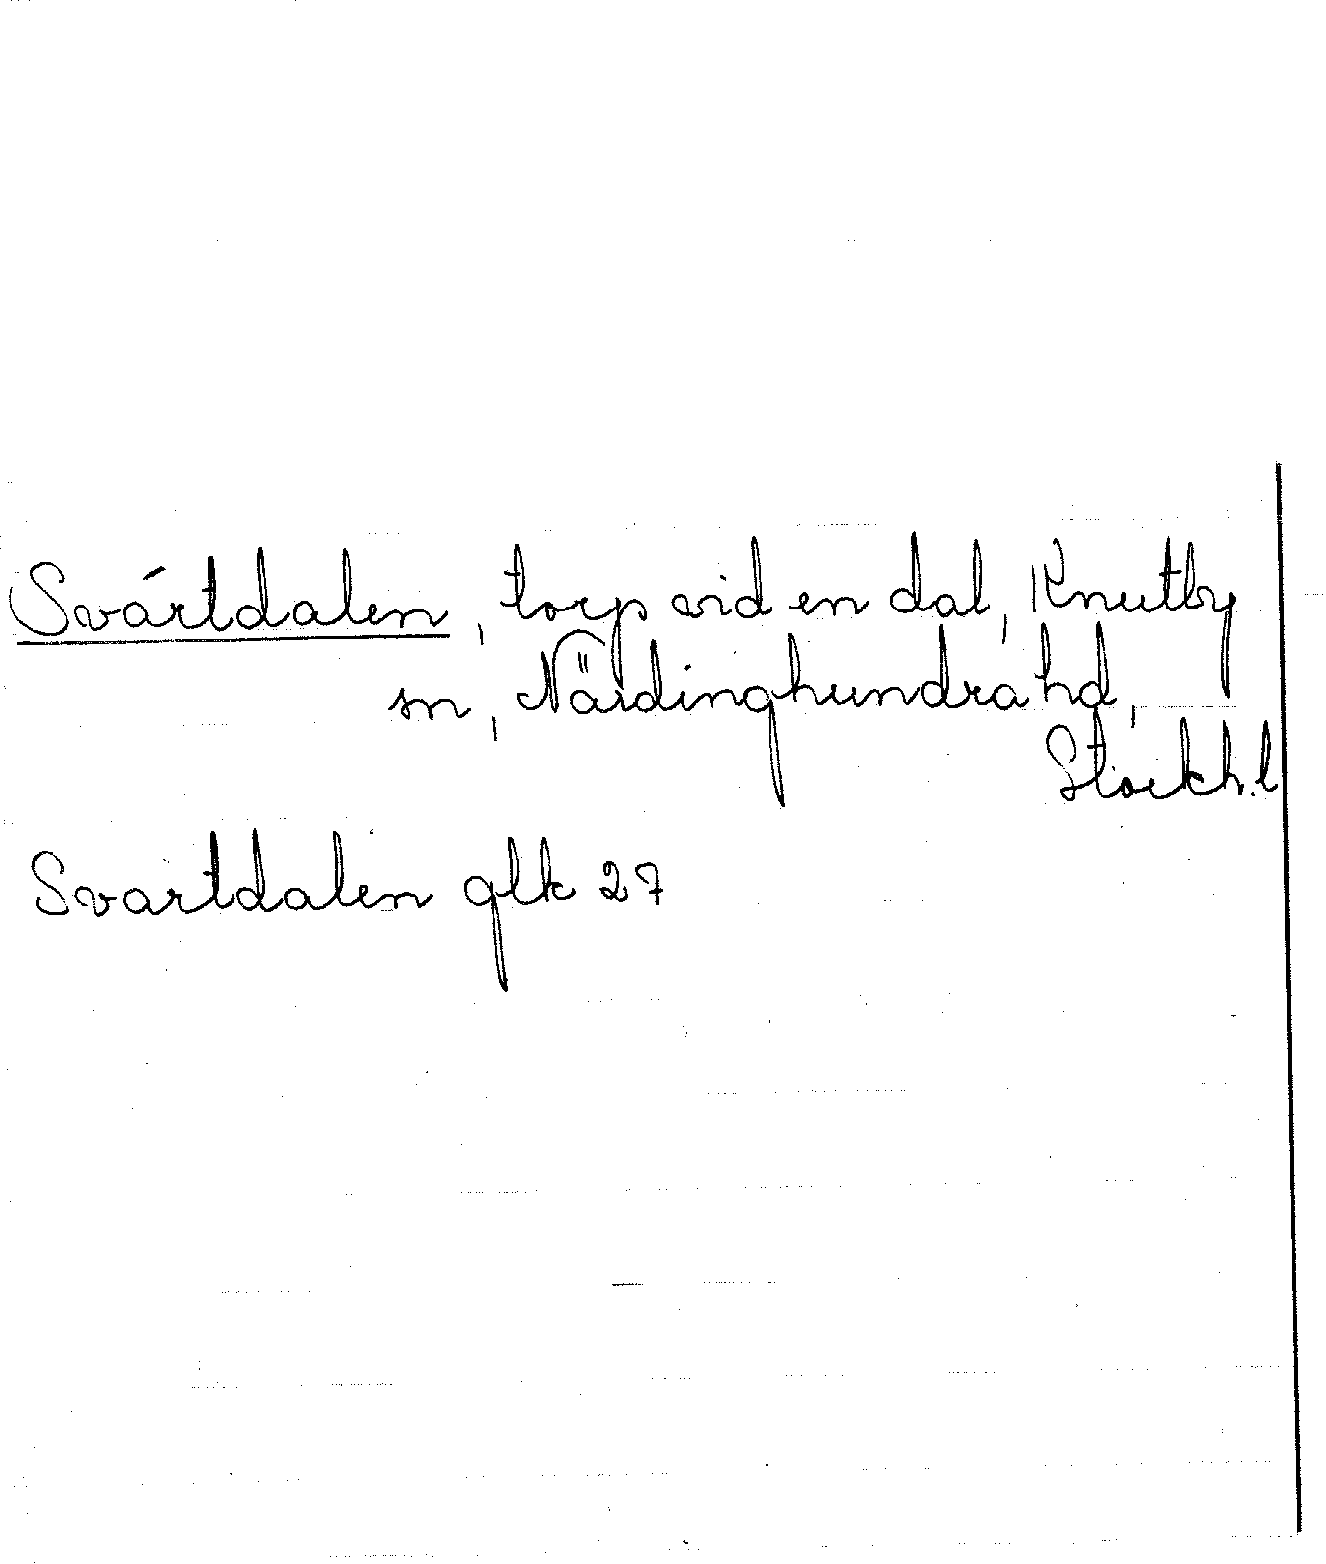 Svártdalen, torp vid en dal, Knutby
sn, Närdinghundra hd,
Stockh. l
Svartdalen glk 27